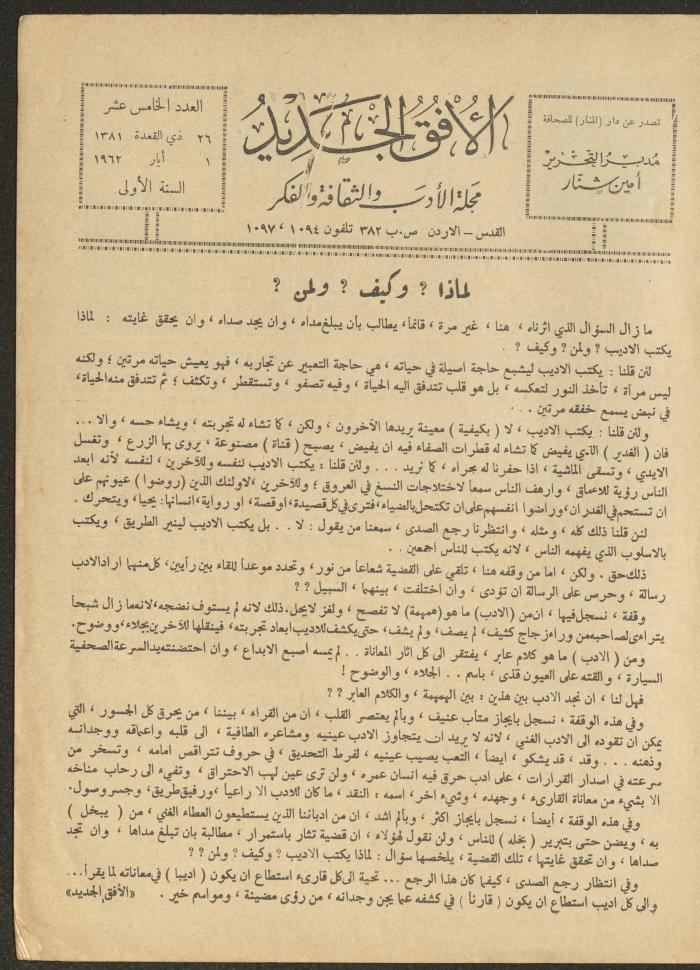 العدد الخامس عشر
٢٦ ذي القعدة ١٣٨١
١ أيار ١٩٦٢
السنة الأولى
الأفق الجديد
مجلة الأدب والثقافة والفكر
القدس – الاردن ص.ب ٣٨٢ تلفون ١٠٩٤ ، ١٠٩٧
تصدر عن دار (المنار) للصحافة
مدير التحرير
أمين شنار
لماذا ? وكيف ? ولمن ?
ما زال السؤال الذي اثرناه ، هنا ، غير مرة ، قائماً، يطالب بأن يبلغ مداه ، وان يجد صداه ، وان يحقق غايته : لماذا
يكتب الاديب ? ولمن ? وكيف ? .
لئن قلنا : يكتب الاديب ليشبع حاجة اصيلة في حياته ، هي حاجة التعبير عن تجاربه ، فهو يعيش حياته مرتين ؛ ولكنه
ليس مرآة ، تأخذ النور لتعكسه ، بل هو قلب تتدفق اليه الحياة ، وفيه تصفو ، وتستقطر ، وتكثف ؛ ثم تتدفق منه الحياة،
في نبض يسمع خفقه مرتين . . .
ولئن قلنا : يكتب الاديب ، لا ( بكيفية ) معينة يريدها الآخرون ، ولكن ، كما تشاء له تجربته ، ويشاء حسه ، والا ...
فان ( الغدير ) الذي يفيض كما تشاء له قطرات الصفاء فيه ان يفيض ، يصبح ( قناة ) مصنوعة ، يروى بها الزرع ، وتغسل
الايدي ، وتسقى الماشية ، اذا حفرنا له مجراه ، كما نريد . . . ولئن قلنا : يكتب الاديب لنفسه وللآخرين ، لنفسه لأنه ابعد
الناس رؤية للاعماق ، وارهف الناس سمعاً لاختلاجات النسغ في العروق ؛ وللآخرين ، لاولئك الذين (روضوا) عيونهم على
ان تستحم في الغدران، وراضوا انفسهم على ان تكتحل بالضياء، فترى في كل قصيدة، او قصة، او رواية، انسانها: يحيا، ويتحرك .
لئن قلنا ذلك كله ، ومثله ، وانتظرنا رجع الصدى ، سمعنا من يقول : لا . . بل يكتب الاديب لينير الطريق ، ويكتب
بالاسلوب الذي يفهمه الناس ، لانه يكتب للناس اجمعين . .
ذلك حق . ولكن ، اما من وقفه هنا ، تلقي على القضية شعاعاً من نور ، وتحدد موعداً للقاء بين رأيين، كل منهما اراد الادب
رسالة ، وحرص على الرسالة ان تؤدى ، وان اختلفت ، بينهما ، السبيل ? ?
وقفة ، نسجل فيها ، ان من (الادب) ما هو (همهمة) لا تفصح ، ولغز لا يحل. ذلك لانه لم يستوف نضجه، لانه ما زال شبحاً
يتراءى لصاحبه من وراء زجاج كثيف، لم يصف، ولم يشف، حتى يكشف للاديب ابعاد تجربته، فينقلها للآخرين بجلاء، ووضوح.
ومن ( الادب ) ما هو كلام عابر ، يفتقر الى كل اثار المعاناة . . لم يمسه اصبع الابداع ، وان احتضنته يد السرعة الصحفية
السيارة ، والقته على العيون قذى ، باسم . . الجلاء ، والوضوح !
فهل لنا ، ان نجد الادب بين هذين : بين الهمهمة ، والكلام العابر ? ?
وفي هذه الوقفة ، نسجل بايجاز متأب عنيف ، وبألم يعتصر القلب ، ان من القراء ، بيننا ، من يحرق كل الجسور ، التي
يمكن ان تقوده الى الادب الغني ، لانه لا يريد ان يتجاوز الادب عينيه ومشاعره الطافية ، الى قلبه واعماقه ووجدانه
وذهنه . . . وقد ، قد يشكو ، ايضاً ، التعب يصيب عينيه ، لفرط التحديق ، في حروف تتراقص امامه ، وتسخر من
سرعته في اصدار القرارات ، على ادب حرق فيه انسان عمره ، ولن ترى عين لهب الاحتراق ، وتفيء الى رحاب مناخه
الا بشيء من معاناة القارىء ، وجهده ، وشيء اخر، اسمه : النقد ، ما كان للادب الا راعياً ، ورفيق طريق، وجسر وصول.
وفي هذه الوقفة ، أيضاً ، نسجل بايجاز اكثر ، وبألم اشد ، ان من ادبائنا الذين يستطيعون العطاء الغني ، من ( يبخل )
به ، ويضن حتى بتبرير ( بخله ) للناس ، ولن نقول لهؤلاء ، ان قضية تثار باستمرار ، مطالبة بان تبلغ مداها ، وان تجد
صداها ، وان تحقق غايتها ، تلك القضية ، يلخصها سؤال : لماذا يكتب الاديب ? وكيف ? ولمن ? ?
وفي انتظار رجع الصدى ، كيفما كان هذا الرجع ... تحية الى كل قارىء استطاع ان يكون ( اديبا ) في معاناته لما يقرأ...
والى كل اديب استطاع ان يكون ( قارئا ) في كشفه عما يجن وجدانه ، من رؤى مضيئة ، ومواسم خير . «الأفق الجديد»